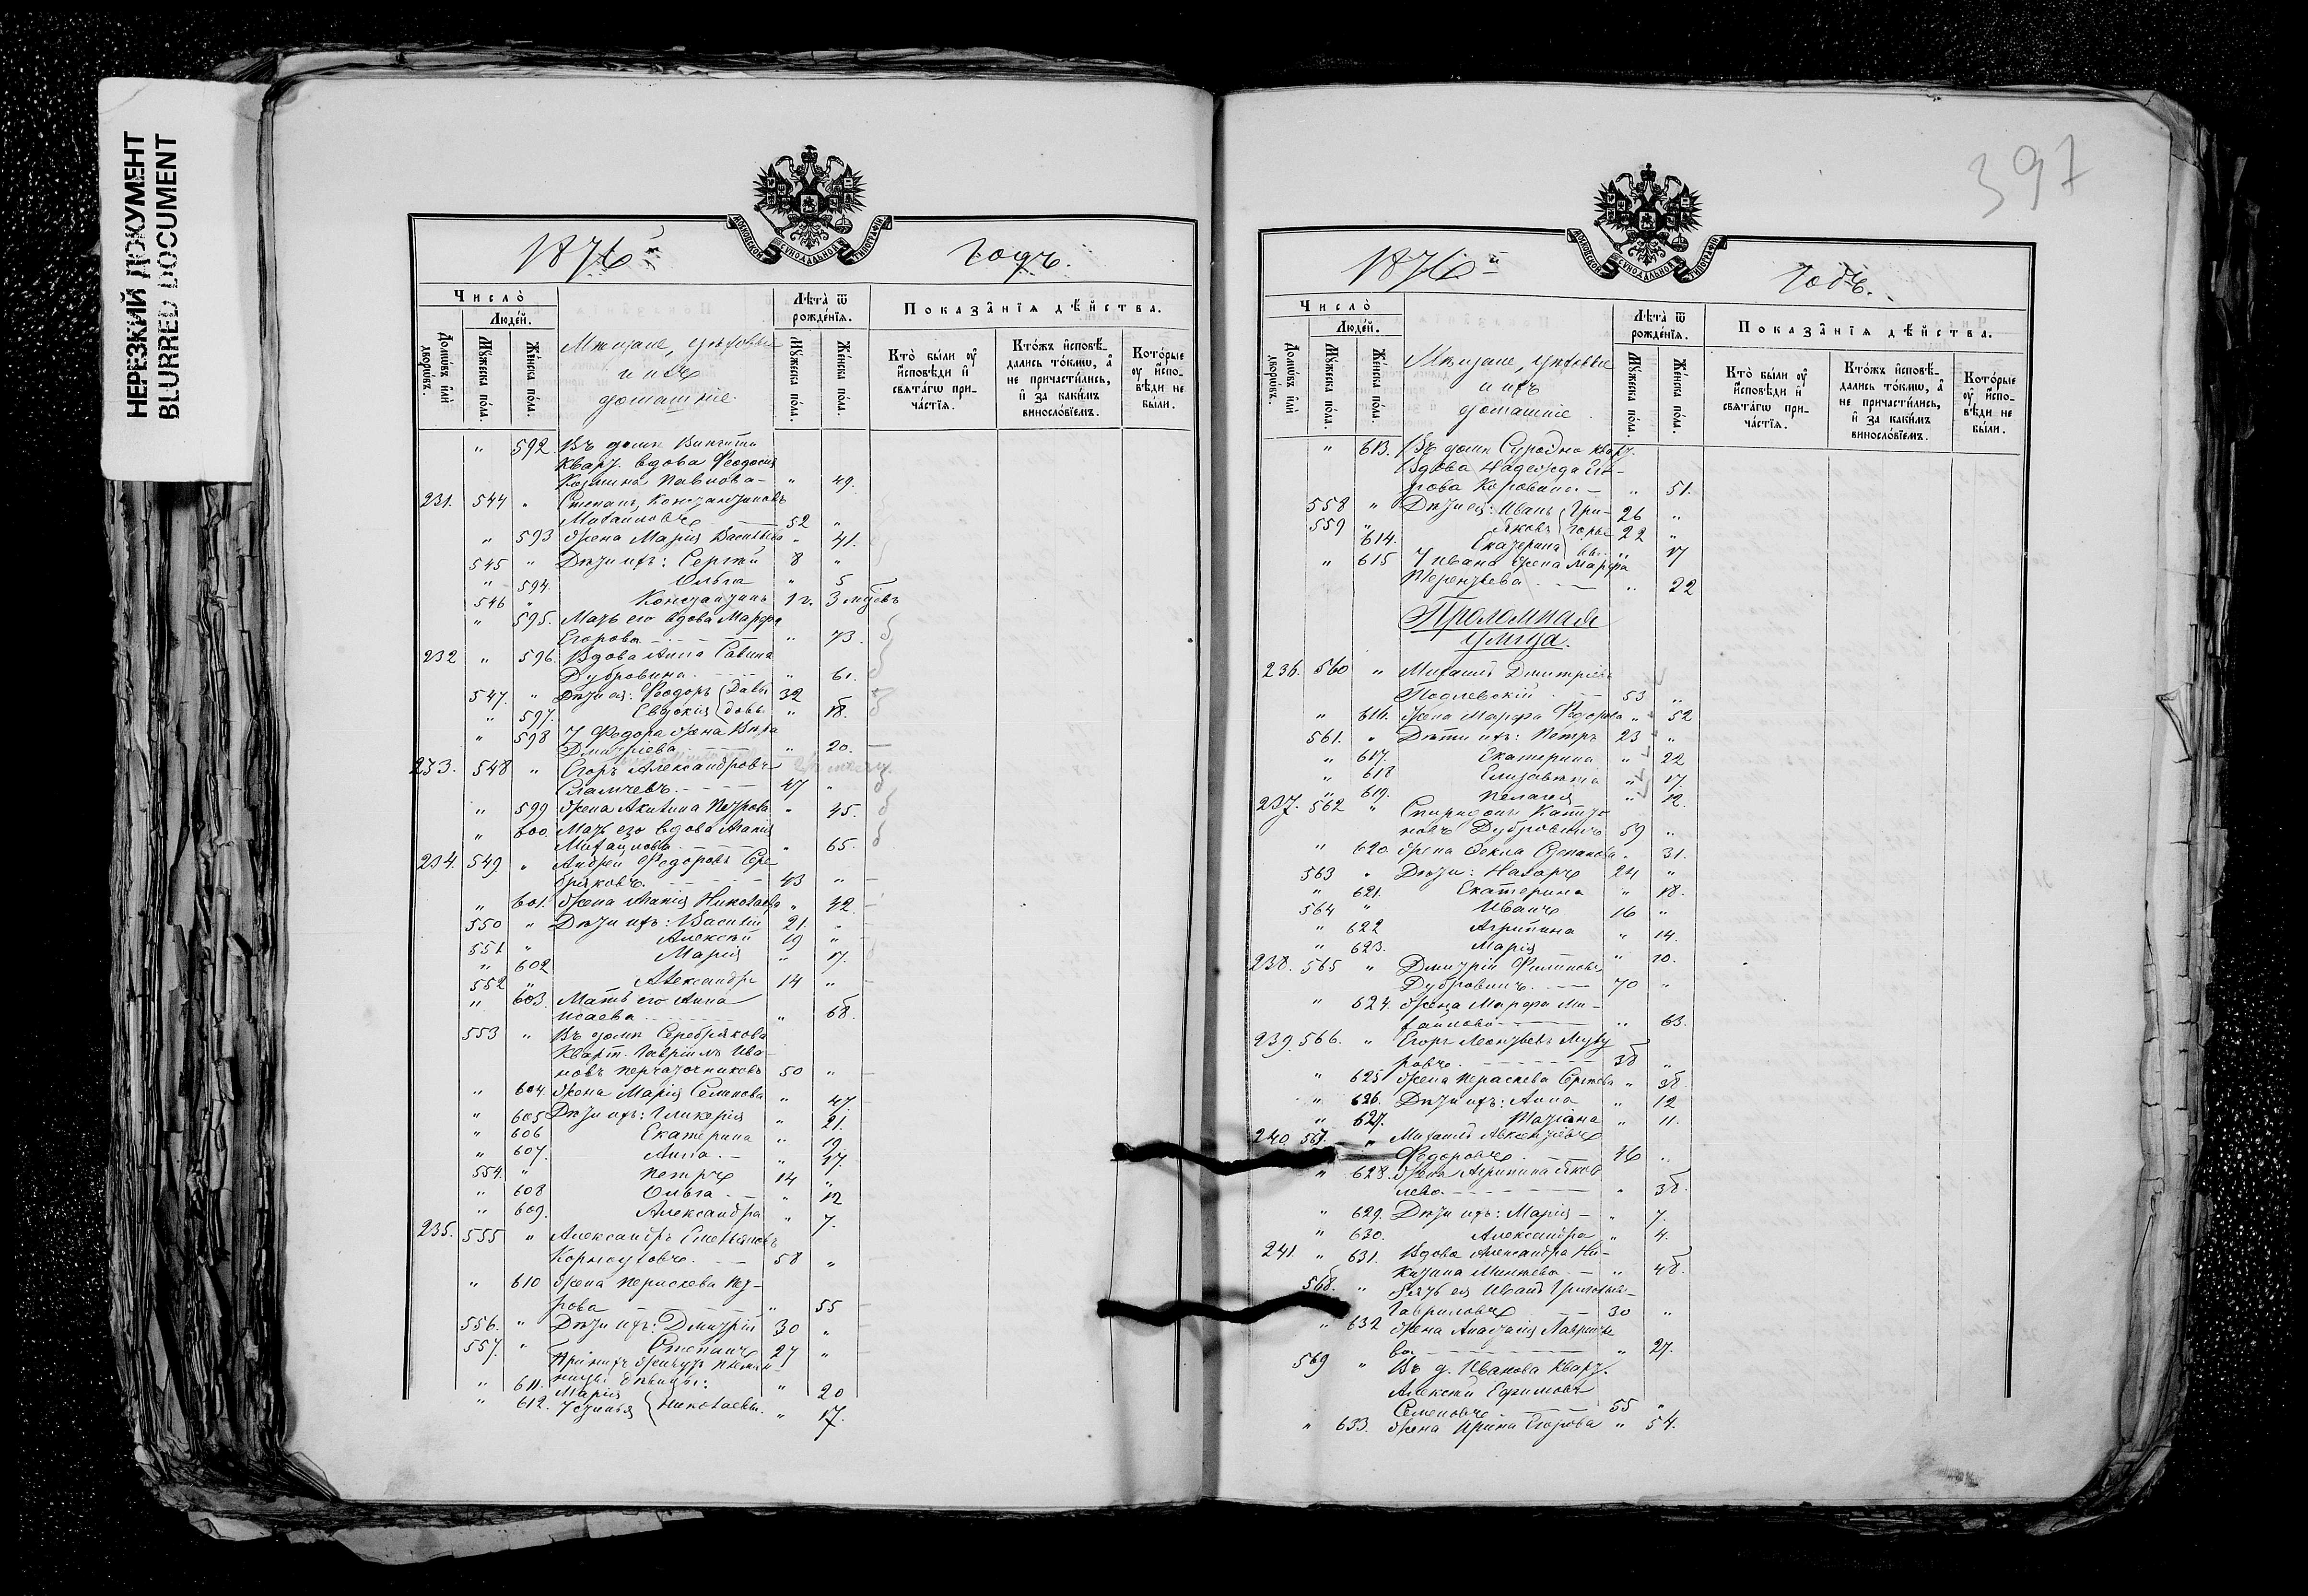 НЕРЕЗКИЙ ДОКУМЕНТ
BLURRED DOCUMENT
МОСКОВСКОЙ СѴНОДАЛЬНОЙ ТИПОГРАФІИ
1876й годъ.
Число̀
Люде́й.
Лѣ́та ѿ рожде́нїѧ.
Показа̑нїѧ дѣ́йства.
Домѡ́въ и҆лѝ дворѡ́въ.
Мꙋ́жеска по́ла.
Же́нска по́ла.
Мѣщане, цеховые
и ихъ
домашніе.
Мꙋ́жеска по́ла.
Же́нска по́ла.
Кто̀ бы́ли ᲂу҆ и҆сповѣ́ди и҆ свѧта́гѡ при-ча́стїѧ.
Кто́жъ и҆сповѣ́-дались то́кмѡ, а҆ не причасти́лись, и҆ за каки́мъ виносло́вїемъ.
Кото́рые ᲂу҆ и҆спо-вѣ́ди не бы́ли.
" 592. Въ домѣ Викента
Кварт. вдова Феодосія
Козмина Павлова - " 49.
231. 544 " Степанъ Константиновъ
Михаиловъ 52 "
" 593 Жена Марія Васильева " 41.
545 " Дѣти ихъ: Сергѣй 8 "
" 594. Ольга " 5
546 " Константинъ 1 г. 3 мѣсъ
" 595. Мать его вдова Марфа
Егорова " 73.
232 " 596. Вдова Анна Савина
Дубровина " 61.
547. " Дѣти ея: Феодоръ Давы 32
" 597. Евдокія довы " 18.
" 598 У Федора жена Вѣра
Дмитріева " 20.
233. 548 " Егоръ Александровъ
47 "
" 599 Жена Акилина Петрова " 45.
" 600. Мать его вдова Агапія
Михаилова " 65.
234. 549 " Андрей Федоровъ Сере
бряковъ 43 "
" 601. Жена Агапія Николаева " 42
550 " Дѣти ихъ: Василій 21. "
551 " Алексѣй 19 "
" 602 Марія " 17.
552 " Александръ 14 "
" 603. Мать его Анна
Исаева " 68.
553 " Въ домѣ Серебрякова
Кварт. Гавріилъ Ива
новъ Перчаточниковъ 50 "
" 604. Жена Марія Семенова " 47
" 605 Дѣти ихъ: Гликерія " 21.
" 606 Екатерина " 19
" 607. Анна " 17.
554. " Петръ 14 "
" 608 Ольга " 12
" 609. Александра " 7.
235. 555 " Александръ Емельяновъ
Корноуховъ 58 "
" 610 Жена Параскева Пет-
рова " 55
556. " Дѣти ихъ: Дмитрій 30 "
557. " Степанъ 27 "
При нихъ живутъ племян
ницы дѣвицы:
" 611. Марія " 20
" 612. Устинья Николаевы. " 17.
397
МОСКОВСКОЙ СѴНОДАЛЬНОЙ ТИПОГРАФІИ
1876й Годъ.
Число̀
Люде́й.
Лѣ́та ѿ рожде́нїѧ.
Показа̑нїѧ дѣ́йства.
Домѡ́въ и҆лѝ дворѡ́въ.
Мꙋ́жеска по́ла.
Же́нска по́ла.
Мѣщане, цеховые
и ихъ
домашніе.
Мꙋ́жеска по́ла.
Же́нска по́ла.
Кто̀ бы́ли ᲂу҆ и҆сповѣ́ди и҆ свѧта́гѡ при-ча́стїѧ.
Кто́жъ и҆сповѣ́-дались то́кмѡ, а҆ не причасти́лись, и҆ за каки́мъ виносло́вїемъ.
Кото́рые ᲂу҆ и҆спо-вѣ́ди не бы́ли.
" 613. Въ домѣ Суродна кварт.
Вдова Надежда Его-
рова Коровина - " 51.
558 " Дѣти ея: Иванъ Гри- 26 "
559 " Яковъ горье 22 "
614. Екатерина вы. " 17
" 615 У Ивана жена Марфа
Терентьева " 22
Проломная
улица.
236. 560 " Михаилъ Дмитріевъ
Подлевскій 53 "
" 616. Жена Марфа Федорова " 52
561. " Дѣти ихъ: Петръ 23 "
" 617. Екатерина " 22
" 618 Елизавета " 17.
" 619. Пелагея " 12.
237. 562 " Спиридонъ
новъ Дубровинъ 59 "
" 620. Жена Фекла Степанова " 31.
563 " Дѣти: Назаръ 24 "
" 621. Екатерина " 18.
564 " Иванъ 16 "
" 622 Агрипина " 14.
" 623. Марія " 10.
238. 565 " Дмитрій Филиповъ
Дубровинъ 70 "
" 624. Жена Марфа Ми-
хайлова " 63.
239. 566. " Егоръ Леонтьевъ
ровъ 38 "
" 625 Жена Параскева Сергѣева " 38.
" 626. Дѣти ихъ: Анна " 12
" 627. Татіана " 11.
240. 567. " Михаилъ Авксентіевъ
Федоровъ 46 "
" 628. Жена Агрипина Яков
лева " 38.
" 629. Дѣти ихъ: Марія - " 7.
" 630. Александра " 4.
241 " 631. Вдова Александра Ни-
китина " 48.
568. " Зять ея Иванъ Григорьев-
Гавриловъ 30 "
" 632 Жена Анастасія Лаврентье
ва " 27.
569 " Въ д. Иванова кварт.
Алексѣй Ефимовъ
Семеновъ 55 "
" 633. Жена Ирина Егорова " 54.